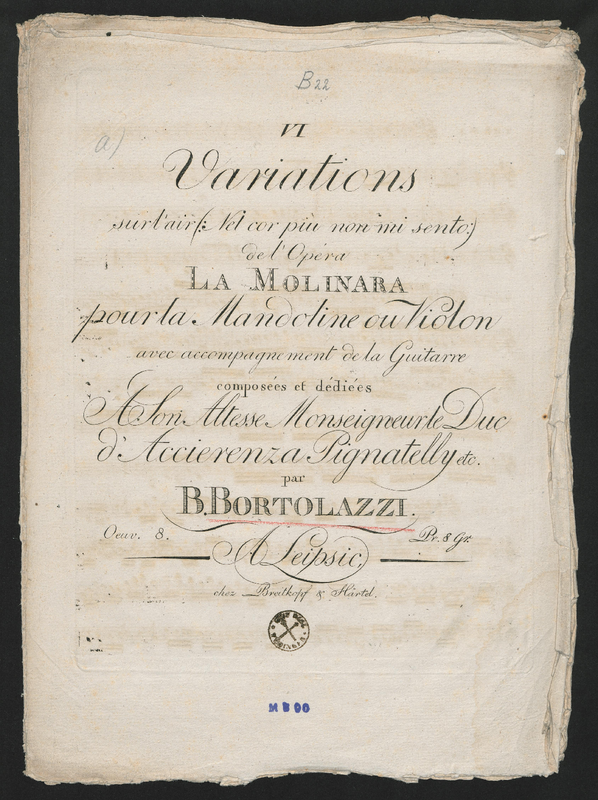 B 22
a)
VI
Variations
sur l'air (: Nel cor più non mi sento:)
de l'Opéra
LA MOLINARA
pour la Mandoline ou Violon
avec accompagnement de la Guitarre
composées et dédiées
A Son Altesse Monseigneur le Duc
d'Accierenza Pignatelly etc.
par
B. BORTOLAZZI.
Oeuv. 8.
Pr. 8 Gr.
A Leipsic,
chez Breitkopf & Härtel.
M B 90